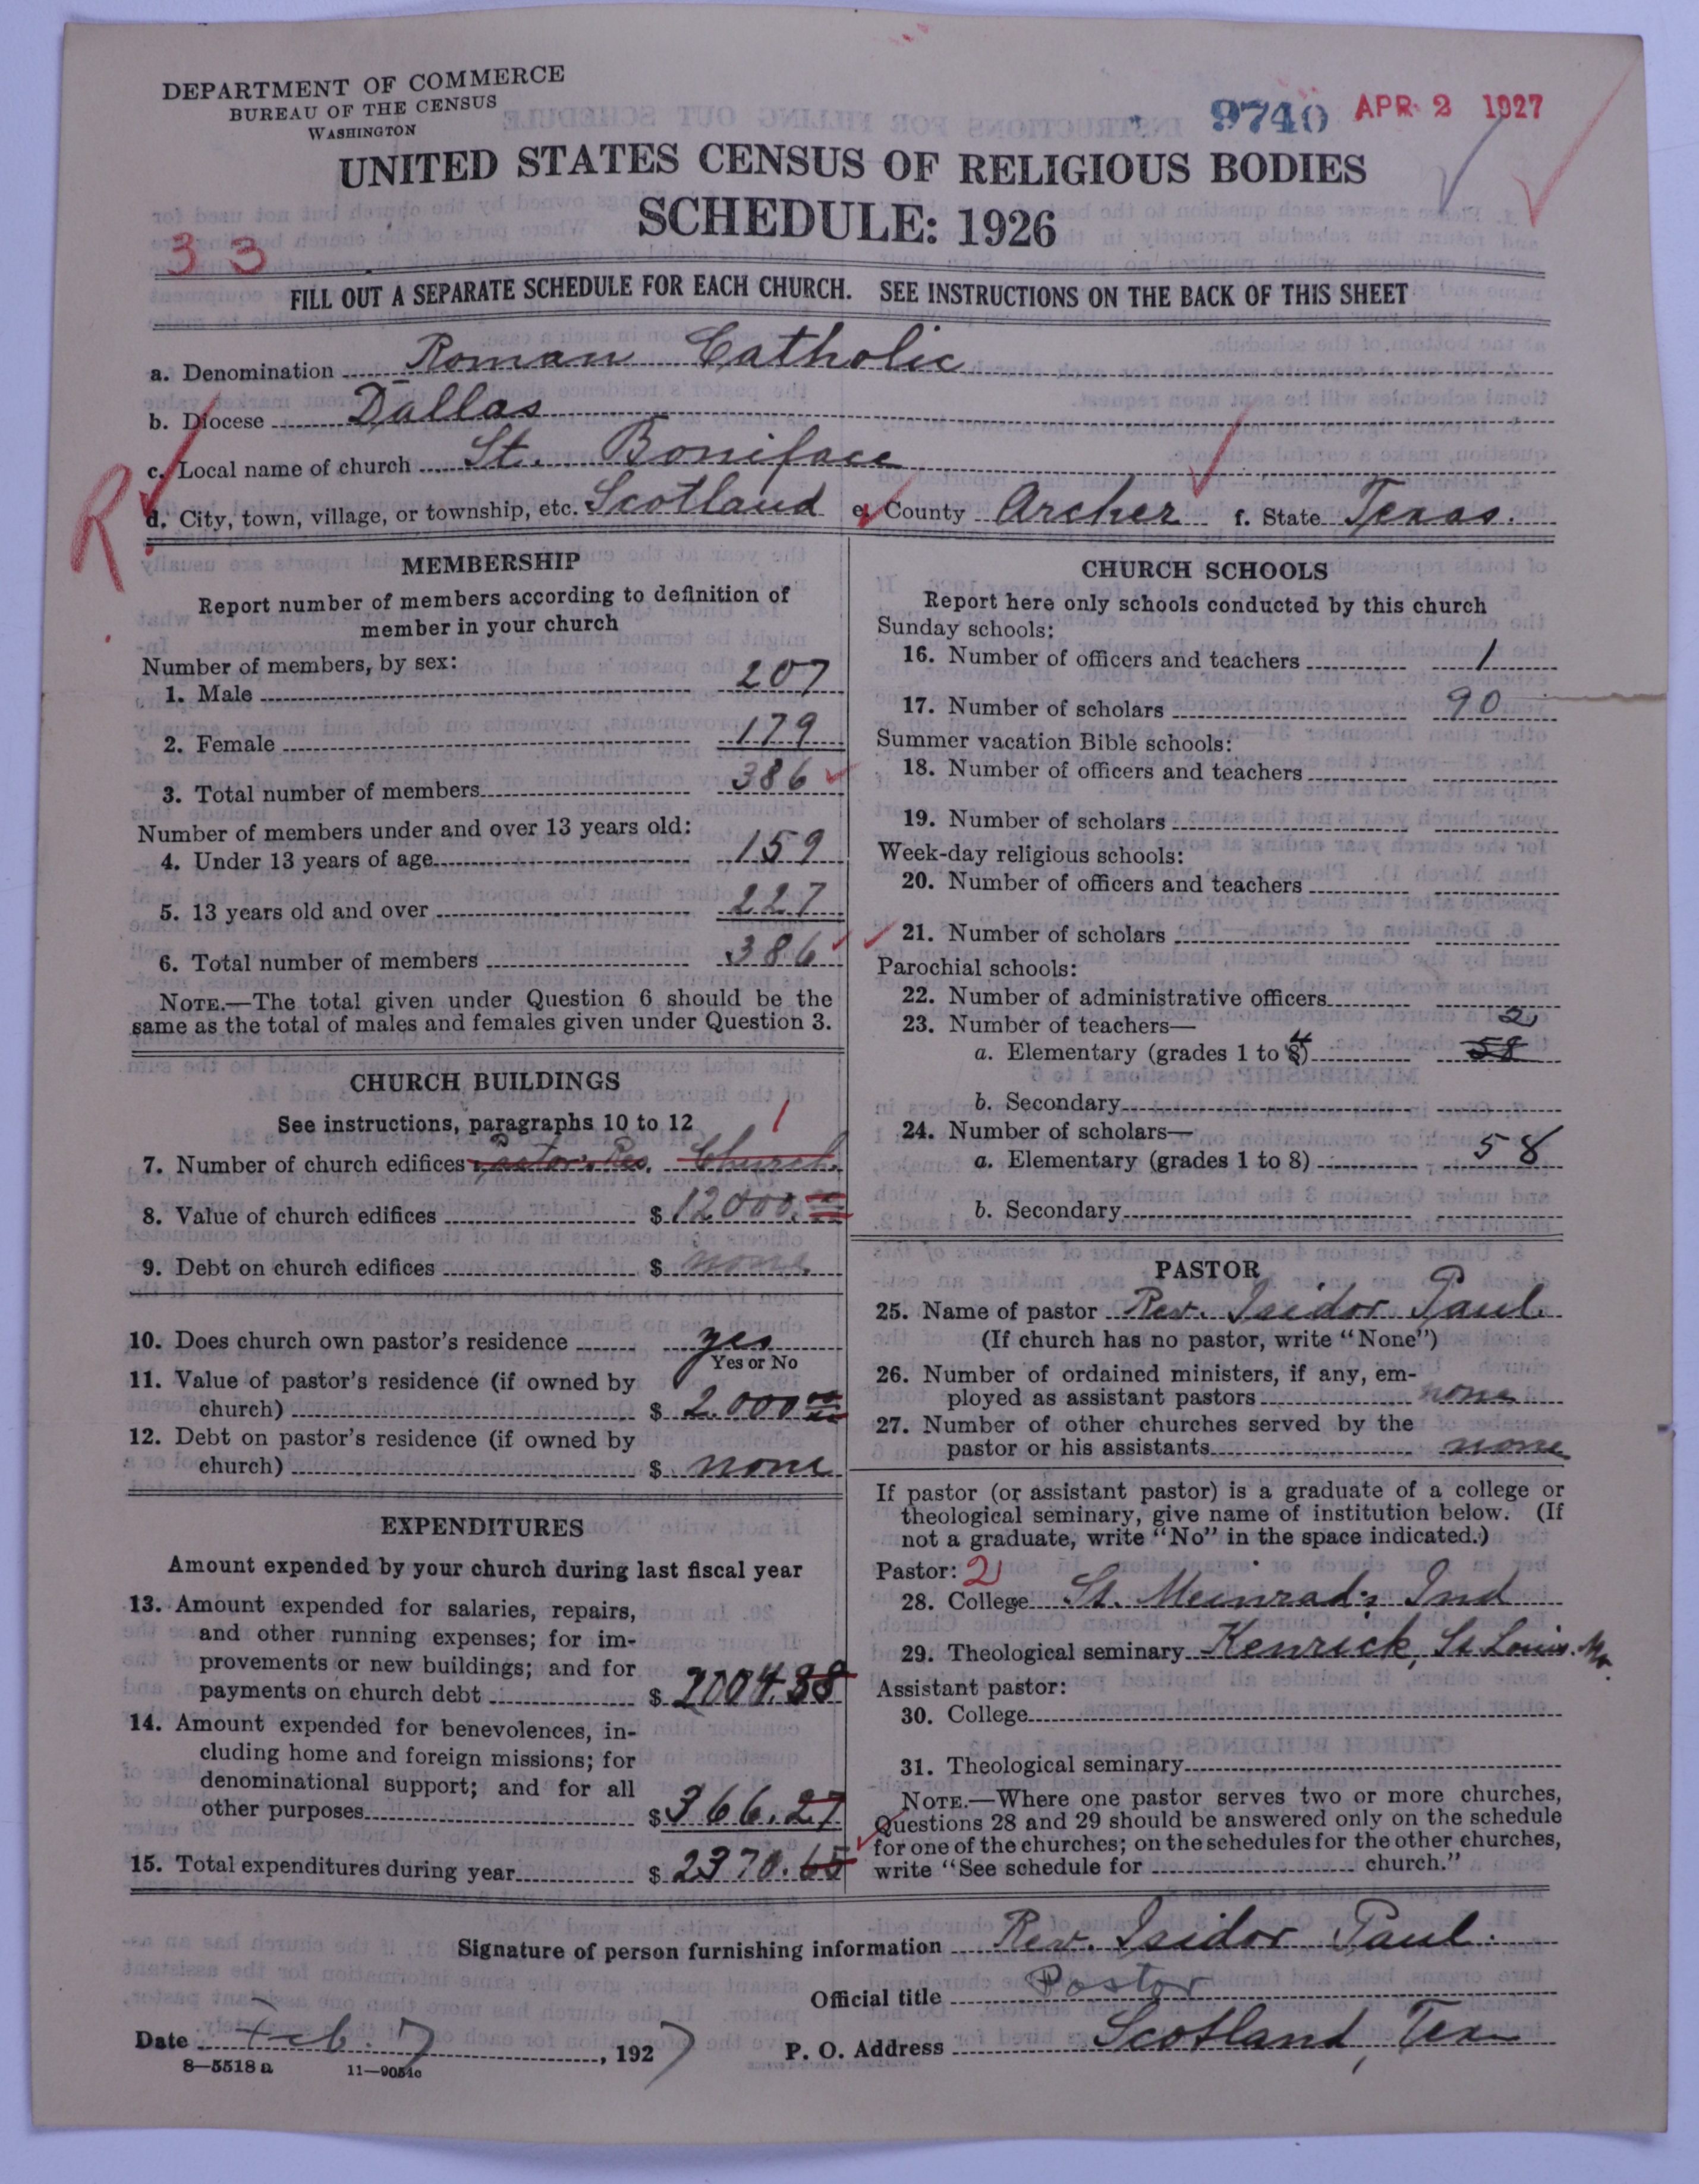 DEPARTMENT OF COMMERCE
BUREAU OF THE CENSUS
WASHINGTON
9740 APR 2 1927
UNITED STATES CENSUS OF RELIGIOUS BODIES
SCHEDULE: 1926
33
FILL OUT A SEPARATE SCHEDULE FOR EACH CHURCH. SEE INSTRUCTIONS ON THE BACK OF THIS SHEET
a. Denomination Roman Catholic
b. Diocese Dallas
c. Local name of church St. Boniface
R
d. City, town, village, or township, etc. Scotland e. County Archer f. State Texas.
MEMBERSHIP
Report number of members according to definition of
member in your church
Number of members, by sex:
1. Male 207
2. Female 179
3. Total number of members 386
Number of members under and over 13 years old:
4. Under 13 years of age 159
5. 13 years old and over 227
6. Total number of members 386
NOTE.—The total given under Question 6 should be the
same as the total of males and females given under Question 3.
CHURCH BUILDINGS
See instructions, paragraphs 10 to 12 1
7. Number of church edifices Pastor's Res. Church
8. Value of church edifices $ 12000.
9. Debt on church edifices $ none
10. Does church own pastor's residence yes
Yes or No
11. Value of pastor's residence (if owned by
church) $ 2.000
12. Debt on pastor's residence (if owned by
church) $ none
EXPENDITURES
Amount expended by your church during last fiscal year
13. Amount expended for salaries, repairs,
and other running expenses; for im-
provements or new buildings; and for
payments on church debt $ 2004.38
14. Amount expended for benevolences, in-
cluding home and foreign missions; for
denominational support; and for all
other purposes $ 366.27
15. Total expenditures during year $ 2370.65
CHURCH SCHOOLS
Report here only schools conducted by this church
Sunday schools:
16. Number of officers and teachers 1
17. Number of scholars 90
Summer vacation Bible schools:
18. Number of officers and teachers
19. Number of scholars
Week-day religious schools:
20. Number of officers and teachers
21. Number of scholars
Parochial schools:
22. Number of administrative officers
23. Number of teachers— 2
a. Elementary (grades 1 to 8) 58
b. Secondary
24. Number of scholars—
a. Elementary (grades 1 to 8) 58
b. Secondary
PASTOR
25. Name of pastor Rev. Isidor Paul.
(If church has no pastor, write "None")
26. Number of ordained ministers, if any, em-
ployed as assistant pastors none
27. Number of other churches served by the
pastor or his assistants none
If pastor (or assistant pastor) is a graduate of a college or
theological seminary, give name of institution below. (If
not a graduate, write "No" in the space indicated.)
Pastor: 2
28. College St. Meinrad's Ind
29. Theological seminary Kenrick, St Louis. Mo.
Assistant pastor:
30. College
31. Theological seminary
NOTE.—Where one pastor serves two or more churches,
Questions 28 and 29 should be answered only on the schedule
for one of the churches; on the schedules for the other churches,
write "See schedule for church."
Signature of person furnishing information Rev. Isidor Paul.
Official title Pastor
Date Feb. 7, 1927 P. O. Address Scotland, Tex
8—5518 a 11—9054c